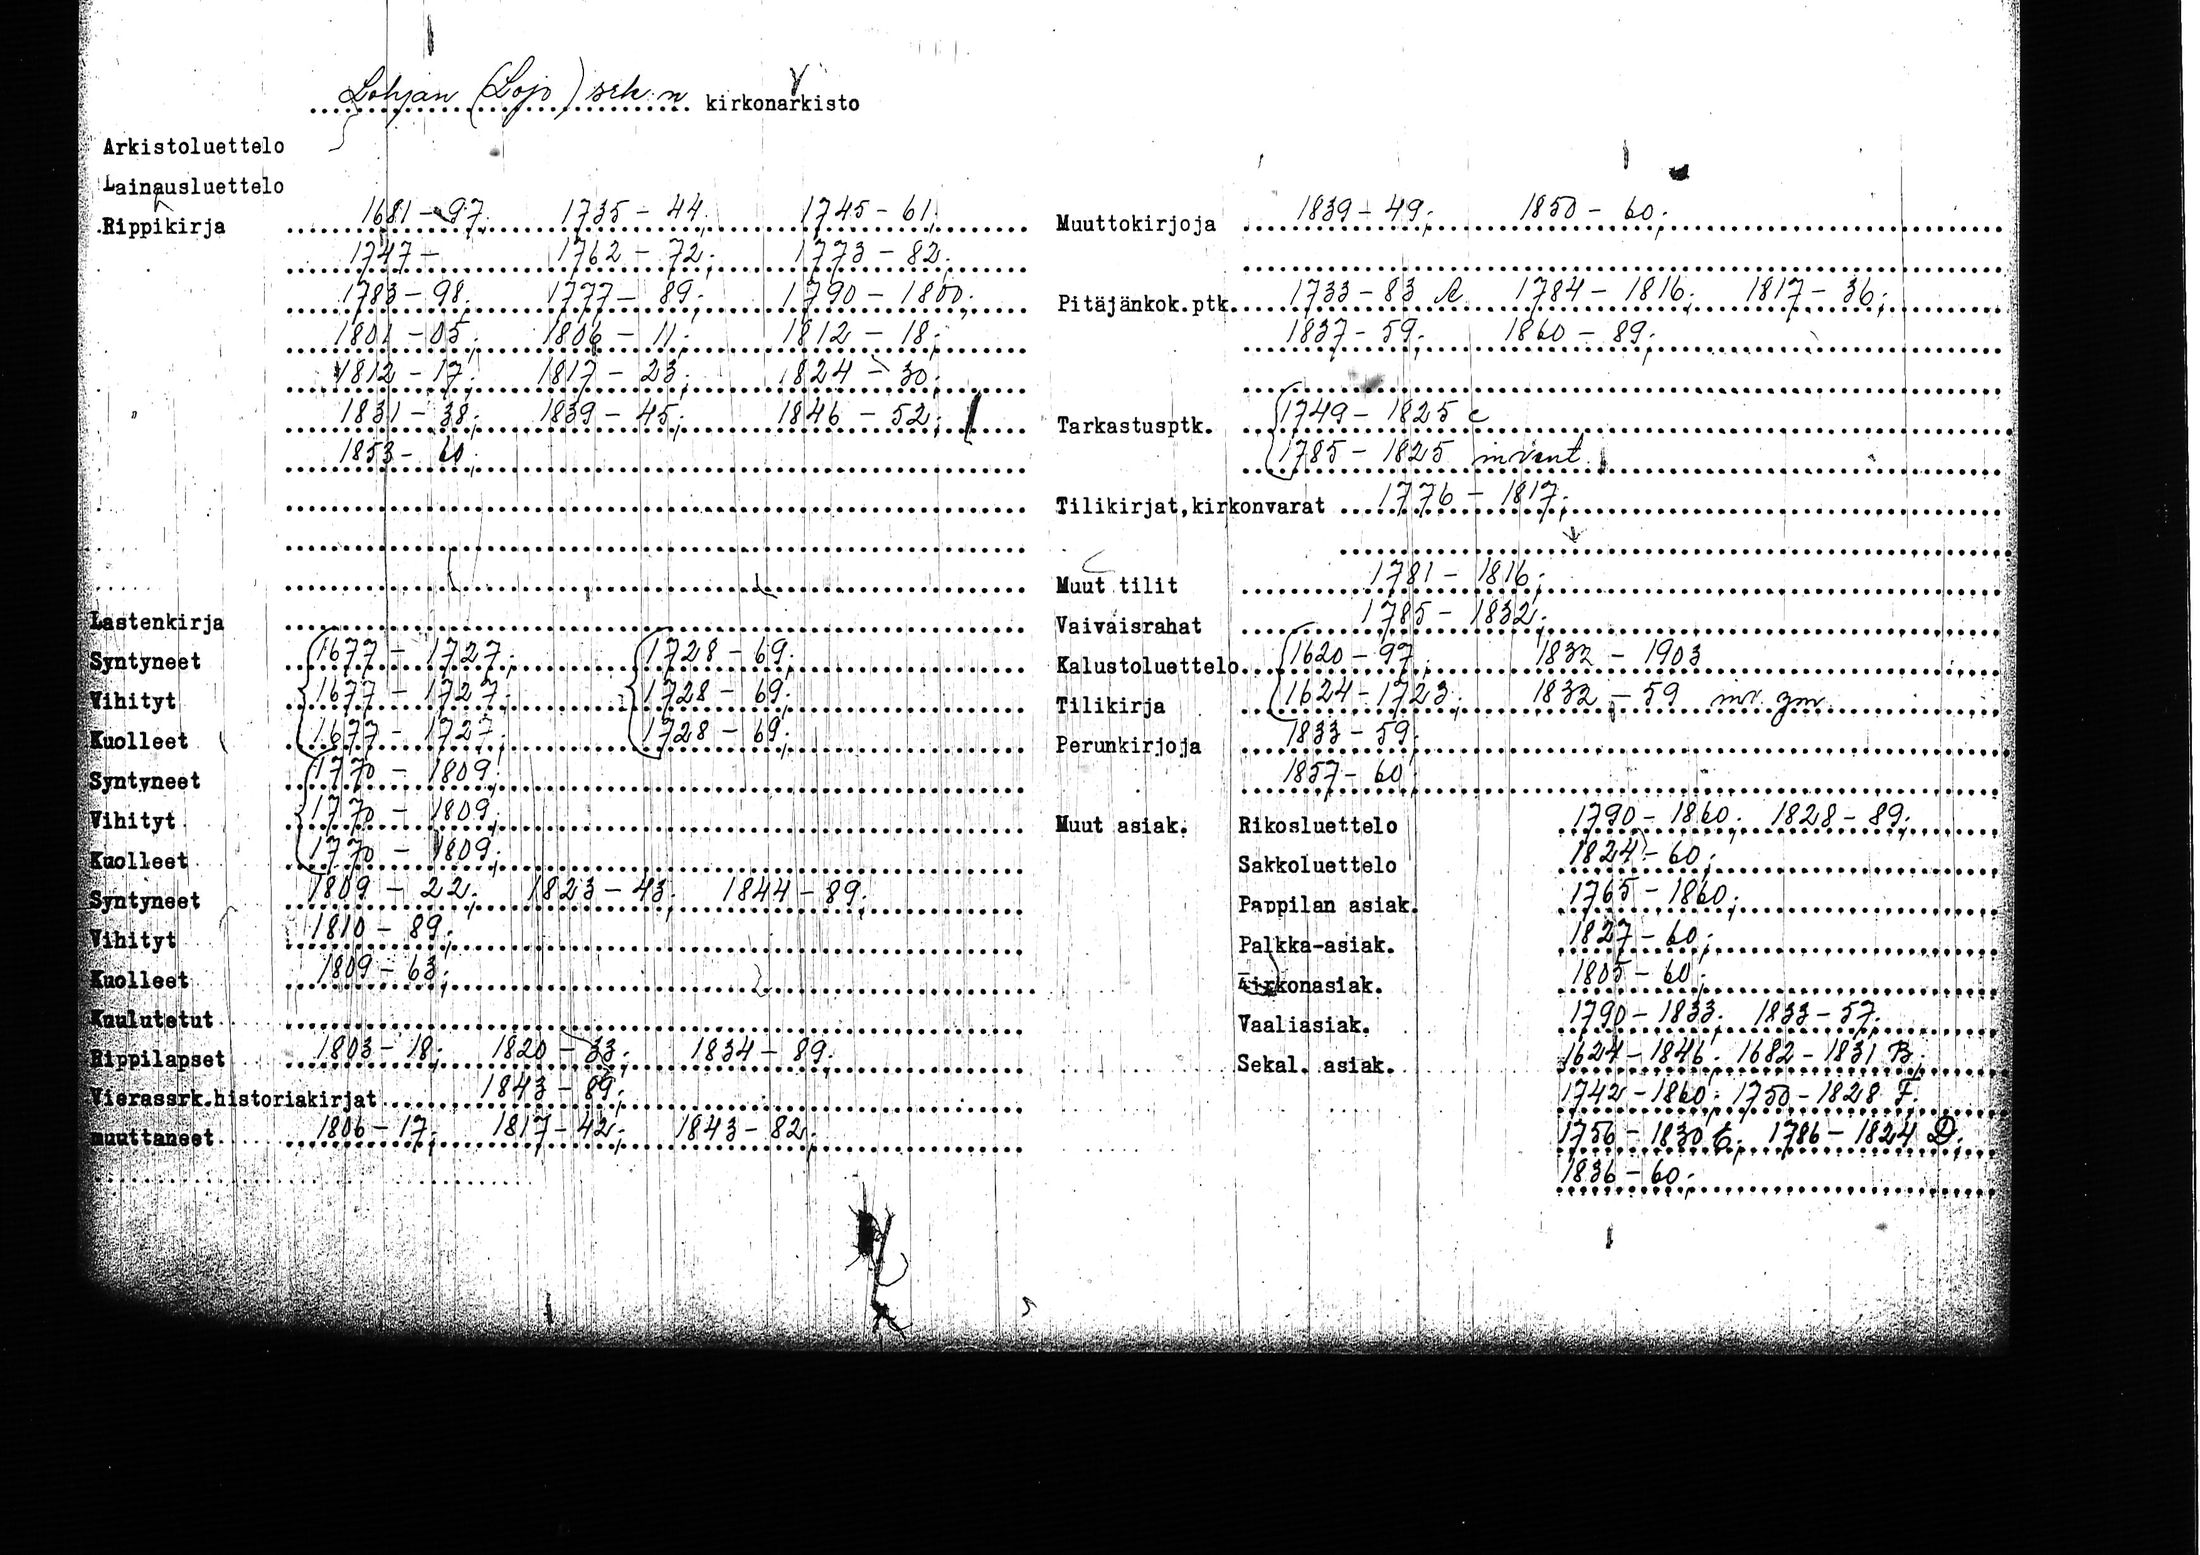 Lohjan (Lojo) srk:n kirkonarkisto
Arkistoluettelo
Lainausluettelo
Rippikirja 1681-97; 1735-44; 1745-61;
1747- 1762-72; 1773-82;
1783-98; 1777-89; 1790-1800;
1801-05; 1806-11; 1812-18;
1812-17; 1817-23; 1824-30;
1831-38; 1839-45; 1846-52;
1853-60;
Lastenkirja
Syntyneet 1677-1727; 1728-69;
Vihityt 1677-1727; 1728-69;
Kuolleet 1677-1727; 1728-69;
Syntyneet 1770-1809;
Vihityt 1770-1809;
Kuolleet 1770-1809;
Syntyneet 1809-22; 1823-43; 1844-89;
Vihityt 1810-89;
Kuolleet 1809-63;
Kuulutetut
Rippilapset 1803-18; 1820-33; 1834-89;
Vierassrk.historiakirjat 1843-89;
muuttaneet 1806-17; 1817-42; 1843-82;
Muuttokirjoja 1839-49; 1850-60;
Pitäjänkok.ptk. 1733-83 A 1784-1816; 1817-36;
1837-59; 1860-89;
Tarkastusptk. 1749-1825 c
1785-1825 invent.
Tilikirjat,kirkonvarat 1776-1817;
Muut tilit 1781-1816;
Vaivaisrahat 1785-1832;
Kalustoluettelo 1620-97; 1832-1903
Tilikirja 1624-1723; 1832-59
Perunkirjoja 1833-59;
1857-60;
Muut asiak. Rikosluettelo 1790-1860; 1828-89;
Sakkoluettelo 1824-60;
Pappilan asiak. 1765-1860;
Palkka-asiak. 1827-60;
Kirkonasiak. 1805-60;
Vaaliasiak. 1790-1833; 1833-57;
Sekal. asiak. 1624-1846; 1682-1831 B;
1742-1860; 1750-1828 F;
1756-1830 E; 1786-1824 D;
1836-60;